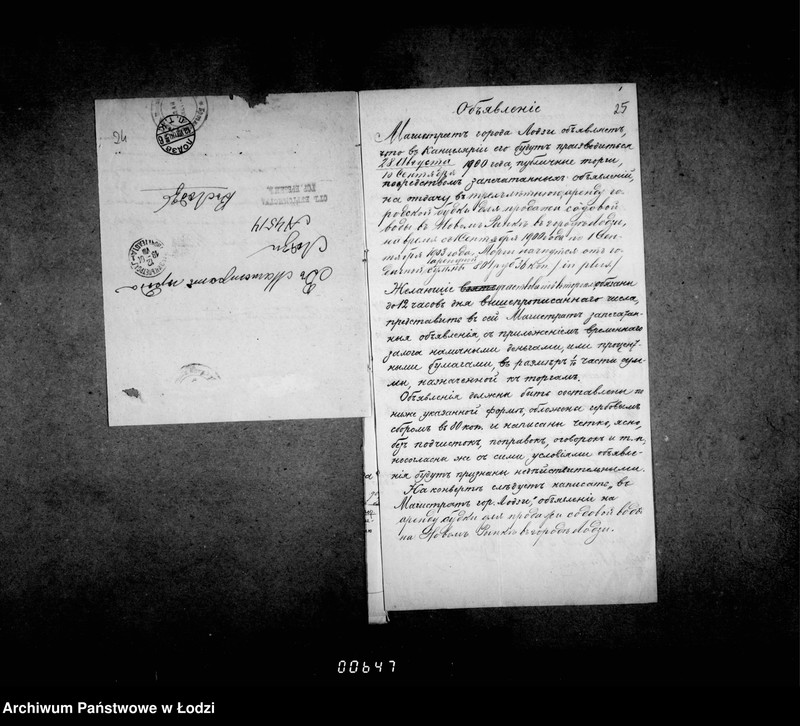 Объявленіе
25
Магистратъ города Лодзи объявляетъ,
что въ Канцеляріи его будутъ производиться
28 Августа
10 Сентября
1900 года, публичные торги,
посредствомъ запечатанныхъ объявленій,
на отдачу въ трехлѣтнюю аренду го-
родской будки для продажи содовой
воды въ Новомъ Рынкѣ въ городѣ Лодзи,
на время съ 1 Сентября 1900 года по 1 Сен-
тября 1903 года. Торги начнутся отъ го-
дичной суммы 501 руб. 36 коп. / in plus /
Желающіе участвовать въ торгахъ обязаны
до 12 часовъ дня вышепрописаннаго числа,
представить въ сей Магистратъ запечатан-
ныя объявленія, съ приложеніемъ временнаго
залога наличными деньгами, или процент-
ными бумагами, въ размѣрѣ 1/10 части сум-
мы, назначенной къ торгамъ.
Объявленія должны быть составлены по
ниже указанной формѣ, обложены гербовымъ
сборомъ въ 80 коп. и написаны четко, ясно,
безъ подчистокъ, поправокъ, оговорокъ и т. п.
несогласныя же съ сими условіями объявле-
нія будутъ признаны недѣйствительными.
На конвертѣ слѣдуетъ написать: „въ
Магистратъ гор. Лодзи, объявленіе на
аренду будки для продажи содовой воды
на Новомъ Рынкѣ въ городѣ Лодзи.
Въ Магистратъ города
Лодзи
N 4514
ЛОДЗЬ
00647
Archiwum Państwowe w Łodzi